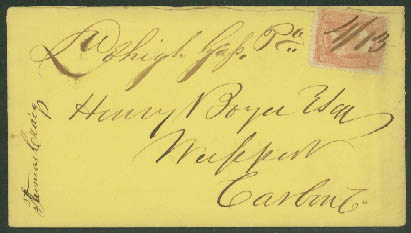 Lehigh Gap. Pa
4/13
Henry Boyer Esq
Weissport
Carbon Co.
Thomas Craig